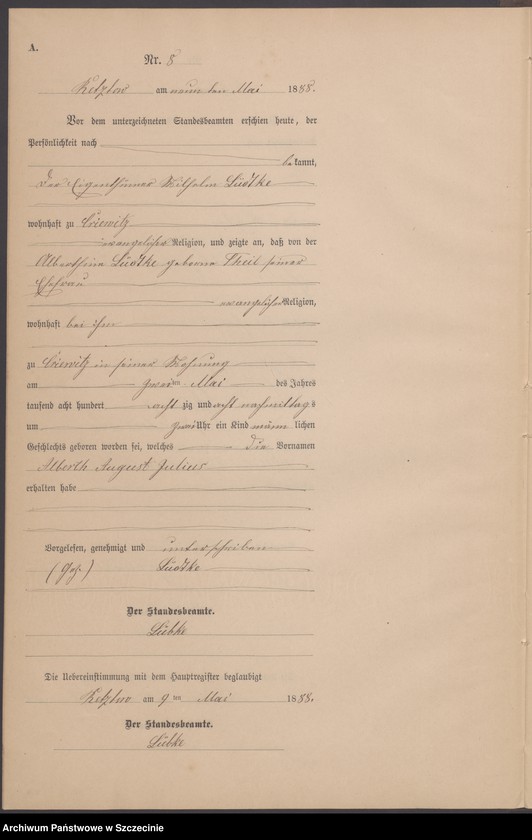 A.
Nr. 8
Retzlow am neunten Mai 1888.
Vor dem unterzeichneten Standesbeamten erschien heute, der
Persönlichkeit nach
bekannt,
Der Eigenthümer Wilhelm Lüdtke
wohnhaft zu Criewitz
evangelischer Religion, und zeigte an, daß von der
Alberthine Lüdtke geborne Theil seiner
Ehefrau
evangelischer Religion,
wohnhaft bei ihm
zu Criewitz in seiner Wohnung
am zweiten Mai des Jahres
tausend acht hundert acht zig und acht nachmittags
um zwei Uhr ein Kind männlichen
Geschlechts geboren worden sei, welches die Vornamen
Alberth August Julius
erhalten habe
Vorgelesen, genehmigt und unterschrieben
(Gez) Lüdtke
Der Standesbeamte.
Lübke
Die Uebereinstimmung mit dem Hauptregister beglaubigt
Retzlow am 9ten Mai 1888.
Der Standesbeamte.
Lübke
Archiwum Państwowe w Szczecinie